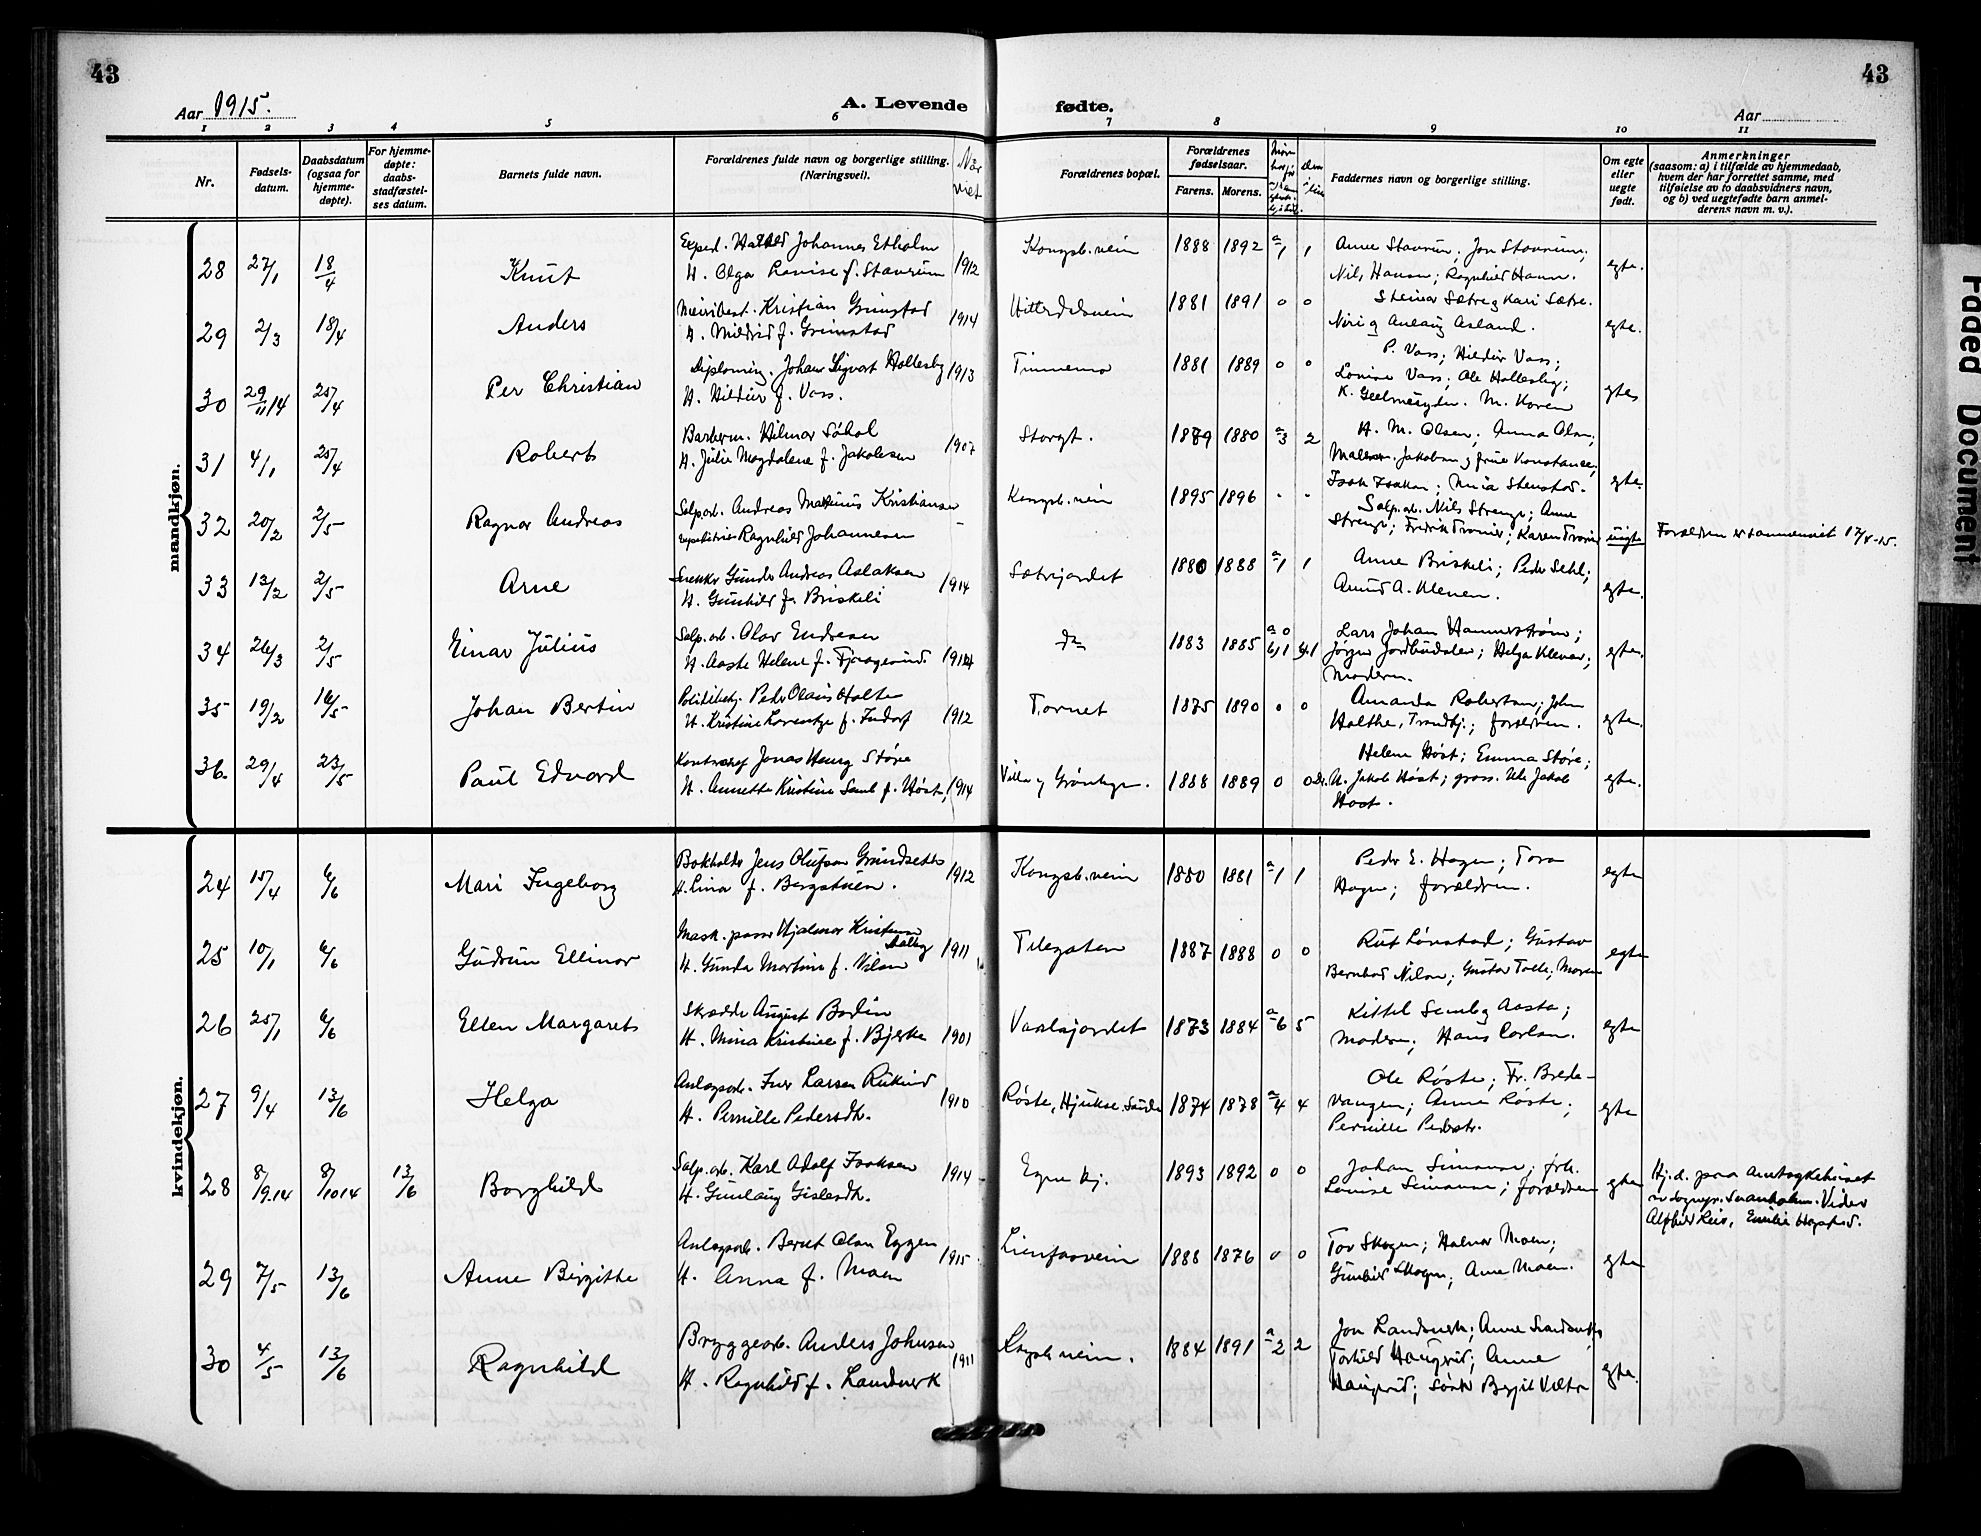 43
43
Aar 1915.
A. Levende
fødte.
Aar
1 2 3 4 5 6 7 8 9 10 11
Nr.
Fødsels-
datum.
Daabsdatum
(ogsaa for
hjemme-
døpte).
For hjemme-
døpte:
daabs-
stadfæstel-
ses datum.
Barnets fulde navn.
Forældrenes fulde navn og borgerlige stilling.
(Næringsvei).
Når
viet
Forældrenes bopæl.
Forældrenes
fødselsaar.
Farens. Morens.
Faddernes navn og borgerlige stilling.
Om egte
eller
uegte
født.
Anmerkninger
(saasom: a) i tilfælde av hjemmedaab,
hvem der har forrettet samme, med
tilføielse av to daabsvidners navn,
og b) ved uegtefødte barn anmel-
derens navn m. v.).
mandkjøn.
28 27/1 18/4 Knut Johannes Etholm
H. Olga Lovise f. Stavrum 1912 Kongsb.vein 1888 1892 a 1 1 Anne Stavrum; Jon Stavrum;
Nils Hansen; Ragnhild Hansen. egte.
29 2/3 18/4 Anders Kristian Grimstad
H. Mildrid f. Grimstad 1914 Hitterdalsvein 1881 1891 0 0 Steinar Sætre og Kari Sætre.
Niri og Aslaug Aasland. egte.
30 29/11 14 25/4 Per Christian Johan Sigvart Holtesby
H. Hildur f. Vass. 1913 Tinnemo 1881 1889 0 0 P. Vass; Hildur Vass;
Lovise Vass; Ole Holtesby;
M. Koren egte
31 4/1 25/4 Robert Barberm. Hilmar Søhol
H. Julie Magdalene f. Jakobsen 1907 Storgt. 1879 1880 a 3 2 H. M. Olsen; Anna Olsen;
Jakobsen og frue Konstanse;
Isak Isaksen; egte.
32 20/2 2/5 Ragnar Andreas Salp.arb. Andreas Markinus Kristiansen
Ragnhild Johannesen - Kongsb.vein 1895 1896 Salp.arb. Nils Strenge; Anne
Strenge; Fredrik Tronier; Karen Tronier uegte Forældrene er sammenviet 17/8-15.
33 13/2 2/5 Arne Snekker Gunder Andreas Aslaksen
H. Gunhild f. Briskeli 1914 Sætrejordet 1880 1888 a 1 1 Anne Briskeli; Peder Sehl;
Amund A. Kleven. egte.
34 26/3 2/5 Einar Julius Salp.arb. Olav Endresen
H. Aaste Helene f. Fjeragerund. 1914 do 1883 1885 a 0 b 1 1 Lars Johan Hammerstrøm;
Jørgen Jordbudalen; Helga Kleven;
Moderen. egte.
35 19/2 16/5 Johan Bertin Politibetj. Peder Olaus Holte
H. Kristine Lorentze f. Indorf 1912 Tornet 1875 1890 0 0 Amanda Robertsen; John
Holthe, Trondhj.; forældrene. egte.
36. 29/4 23/5 Paul Edvard Kontorchef Jonas Henry Støre
H. Annette Kristine Semb f. Høst; 1914 Villa og Grønbyen. 1888 1889 0 0 Helene Høst; Emma Støre;
Dr. N. Jakob Høst; gross. Nils Jakob
Høst. egte.
kvindekjøn.
24 15/4 6/6 Mari Ingeborg Bokholder Jens Olufsen Grundseth
H. Lina f. Bergstuen. 1912 Kongsb.vein 1880 1881 a 1 1 Peder E. Hagen; Tora
Hagen; forældrene. egte
25 10/1 6/6 Gudrun Ellinor Mask. passer Hjalmar Kristensen
H. Gunda Martine f. Nilsen 1911 Tilegaten 1887 1888 0 0 Rut Lønstad; Gustav
Bernhard Nilsen; Gustav Tolle; Moren egte
26 25/1 6/6 Ellen Margaret Skrædder August Bodin
H. Mina Kristine f. Bjerke 1901 Vaalajordet 1873 1884 a 6 5 Kittel Semb og Aasta;
Moderen; Hans Carlsen. egte
27 9/4 13/6 Helga Anlægsarb. Iver Larsen Rukind
H. Pernille Pedersdtr. 1910 Røste, Hjukse. Sauda 1874 1878 a 4 4 Ole Røste; Fr. Brede-
vangen; Anne Røste;
Pernille Pedersdtr. egte
28 8/9.14 8/10 14 13/6 Borghild Salp.arb. Karl Adolf Isaksen
H. Gunlaug Gislesdtr. 1914 Egne hj. 1893 1892 0 0 Johan Simonsen; frk.
Lovise Simonsen; forældrene egte Hj.d. paa Amtssykehuset
av sognepr. Svanholm. Vidner
Alfhild Leis, Emilie Hogstad.
29 7/5 13/6 Anne Birgitte Anlægsarb. Bernt Olsen Eggen
H. Anna f. Moen 1915 Lienfosvein 1888 1876 0 0 Tov Skogen; Halvor Moen;
Gunhild Skogen; Anne Moen. egte
30 4/5 13/6 Ragnhild Bryggearb. Anders Johnsen
H. Ragnhild f. Landsverk 1911 Kongsb.vein. 1884 1891 a 2 2 Jon Landsverk; Anne Landsverk;
Torhild Haugrud; Anne
Haugrud; Birgit egte.
Faded Document